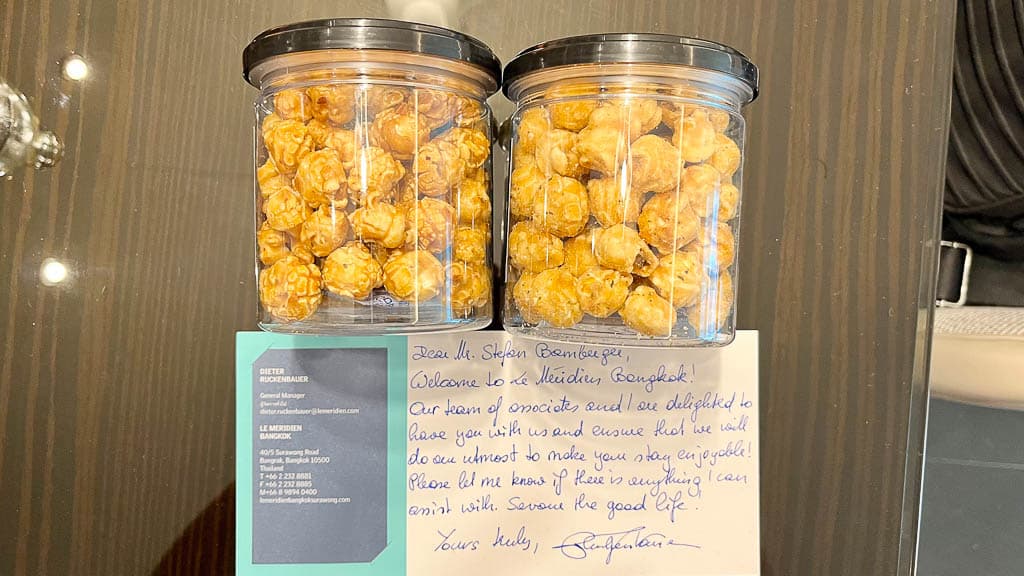 DIETER
RUCKENBAUER
General Manager
dieter.ruckenbauer@lemeridien.com
LE MERIDIEN
BANGKOK
40/5 Surawong Road
Bangrak, Bangkok 10500
Thailand
T +66 2 232 8881
F +66 2 232 8885
M+66 8 9894 0400
lemeridienbangkoksurawong.com
Dear Mr. Stefan Bamberger,
Welcome to Le Méridien Bangkok!
Our team of associates and I are delighted to
have you with us and ensure that we will
do our utmost to make your stay enjoyable!
Please let me know if there is anything I can
assist with. Savour the good life!
Yours truly,